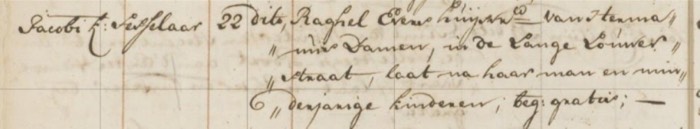 Jacobi k: Geisselaar 22 dito, Raghel Evers huijsvr. van Herma„
„nus Damen, in de Lange Louwer„
„straat, laat na haar man en min„
6 „derjarige kinderen, beg: gratis; —